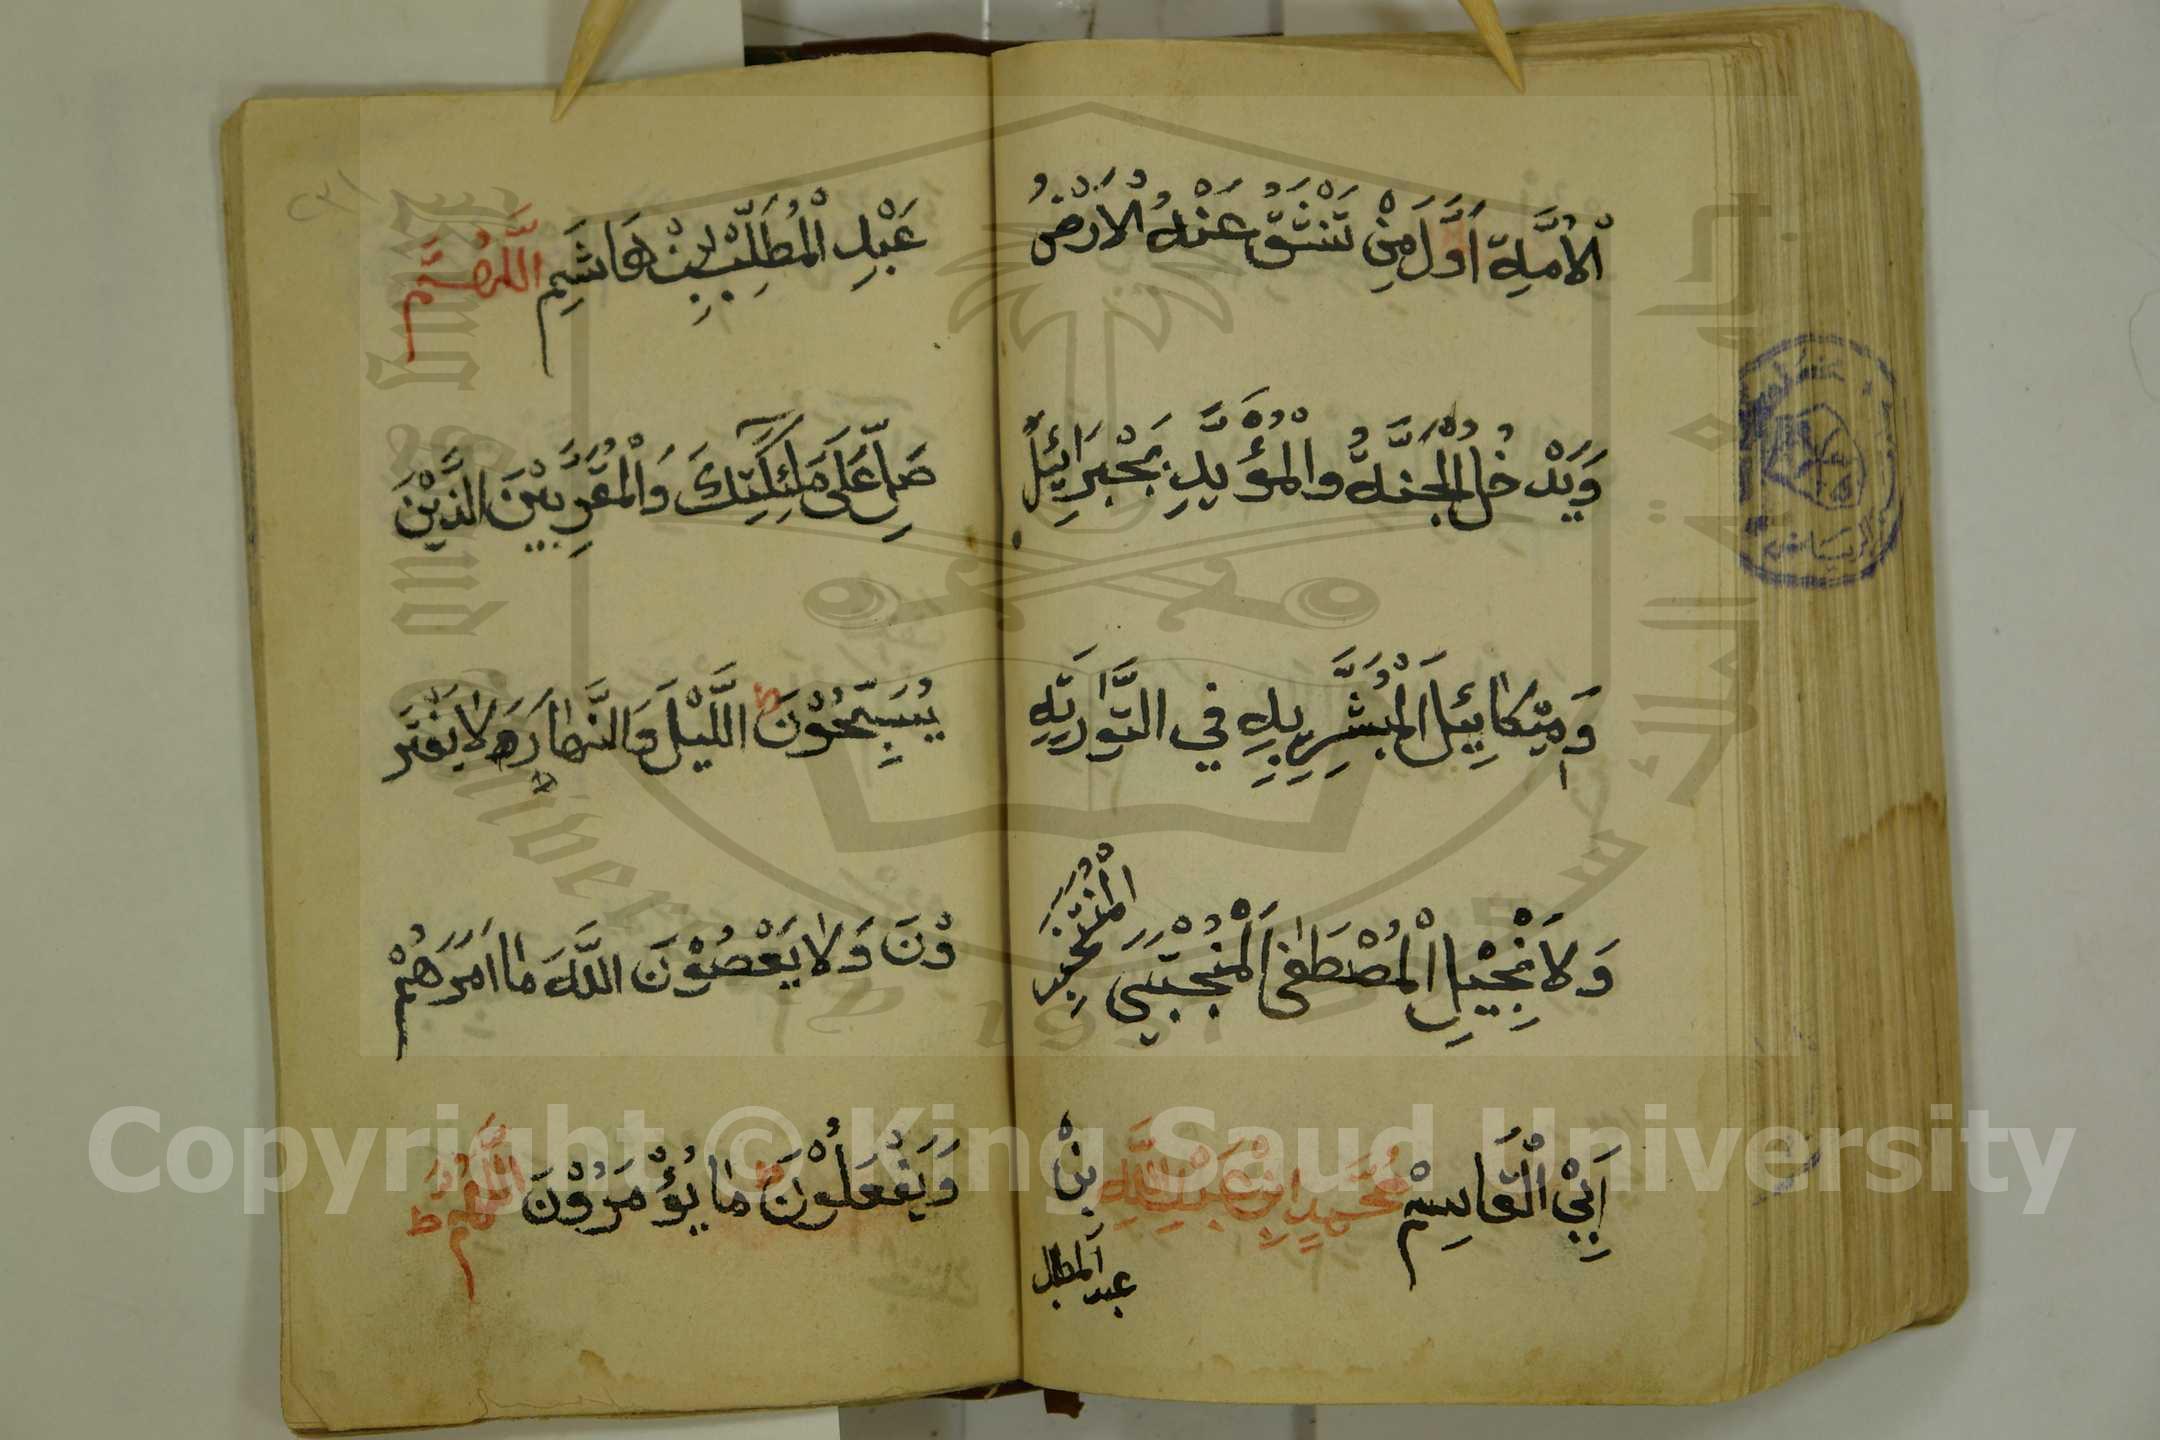 الْأُمَّةِ أَوَّلَ مَنْ تَنْشَقُّ عَنْهُ الْأَرْضُ
وَيَدْخُلُ الْجَنَّةَ والْمُؤَيَّدِ بِجَبْرَائِيْلَ
وَمِيْكَائِيْلَ الْمُبَشَّرِ بِهِ فِي التَّوْرٰيةِ
وَلْاِنْجِيْلِ الْمُصْطَفٰى الْمُجْتَبٰى الْمُنْتَخَبِ
أَبِيْ الْقَاسِمْ مُحَمَّدِ ابْنِ عَبْدِ اللّٰهِ بْنِ
عبد المطلب
عَبْدِ الْمُطَلِّبْ بِنْ هَاشِمِ اَللّٰهُمَّ
صَلِّ عَلَى مَلٰئِكَتِكَ وَالْمُقَرَّبِيْنَ الَّذِيْنَ
يُسَبِّحُوْنَ اللَّيْلَ وَالنَّهَارَ وَلَا يَفْتَرُ
وْنَ وَلَا يَعْصُوْنَ اللّٰهَ مَا اَمَرَهُمْ
وَيَفْعَلُوْنَ مَا يُؤْمَرُوْنَ اللّٰهُمَّ
Copyright © King Saud University